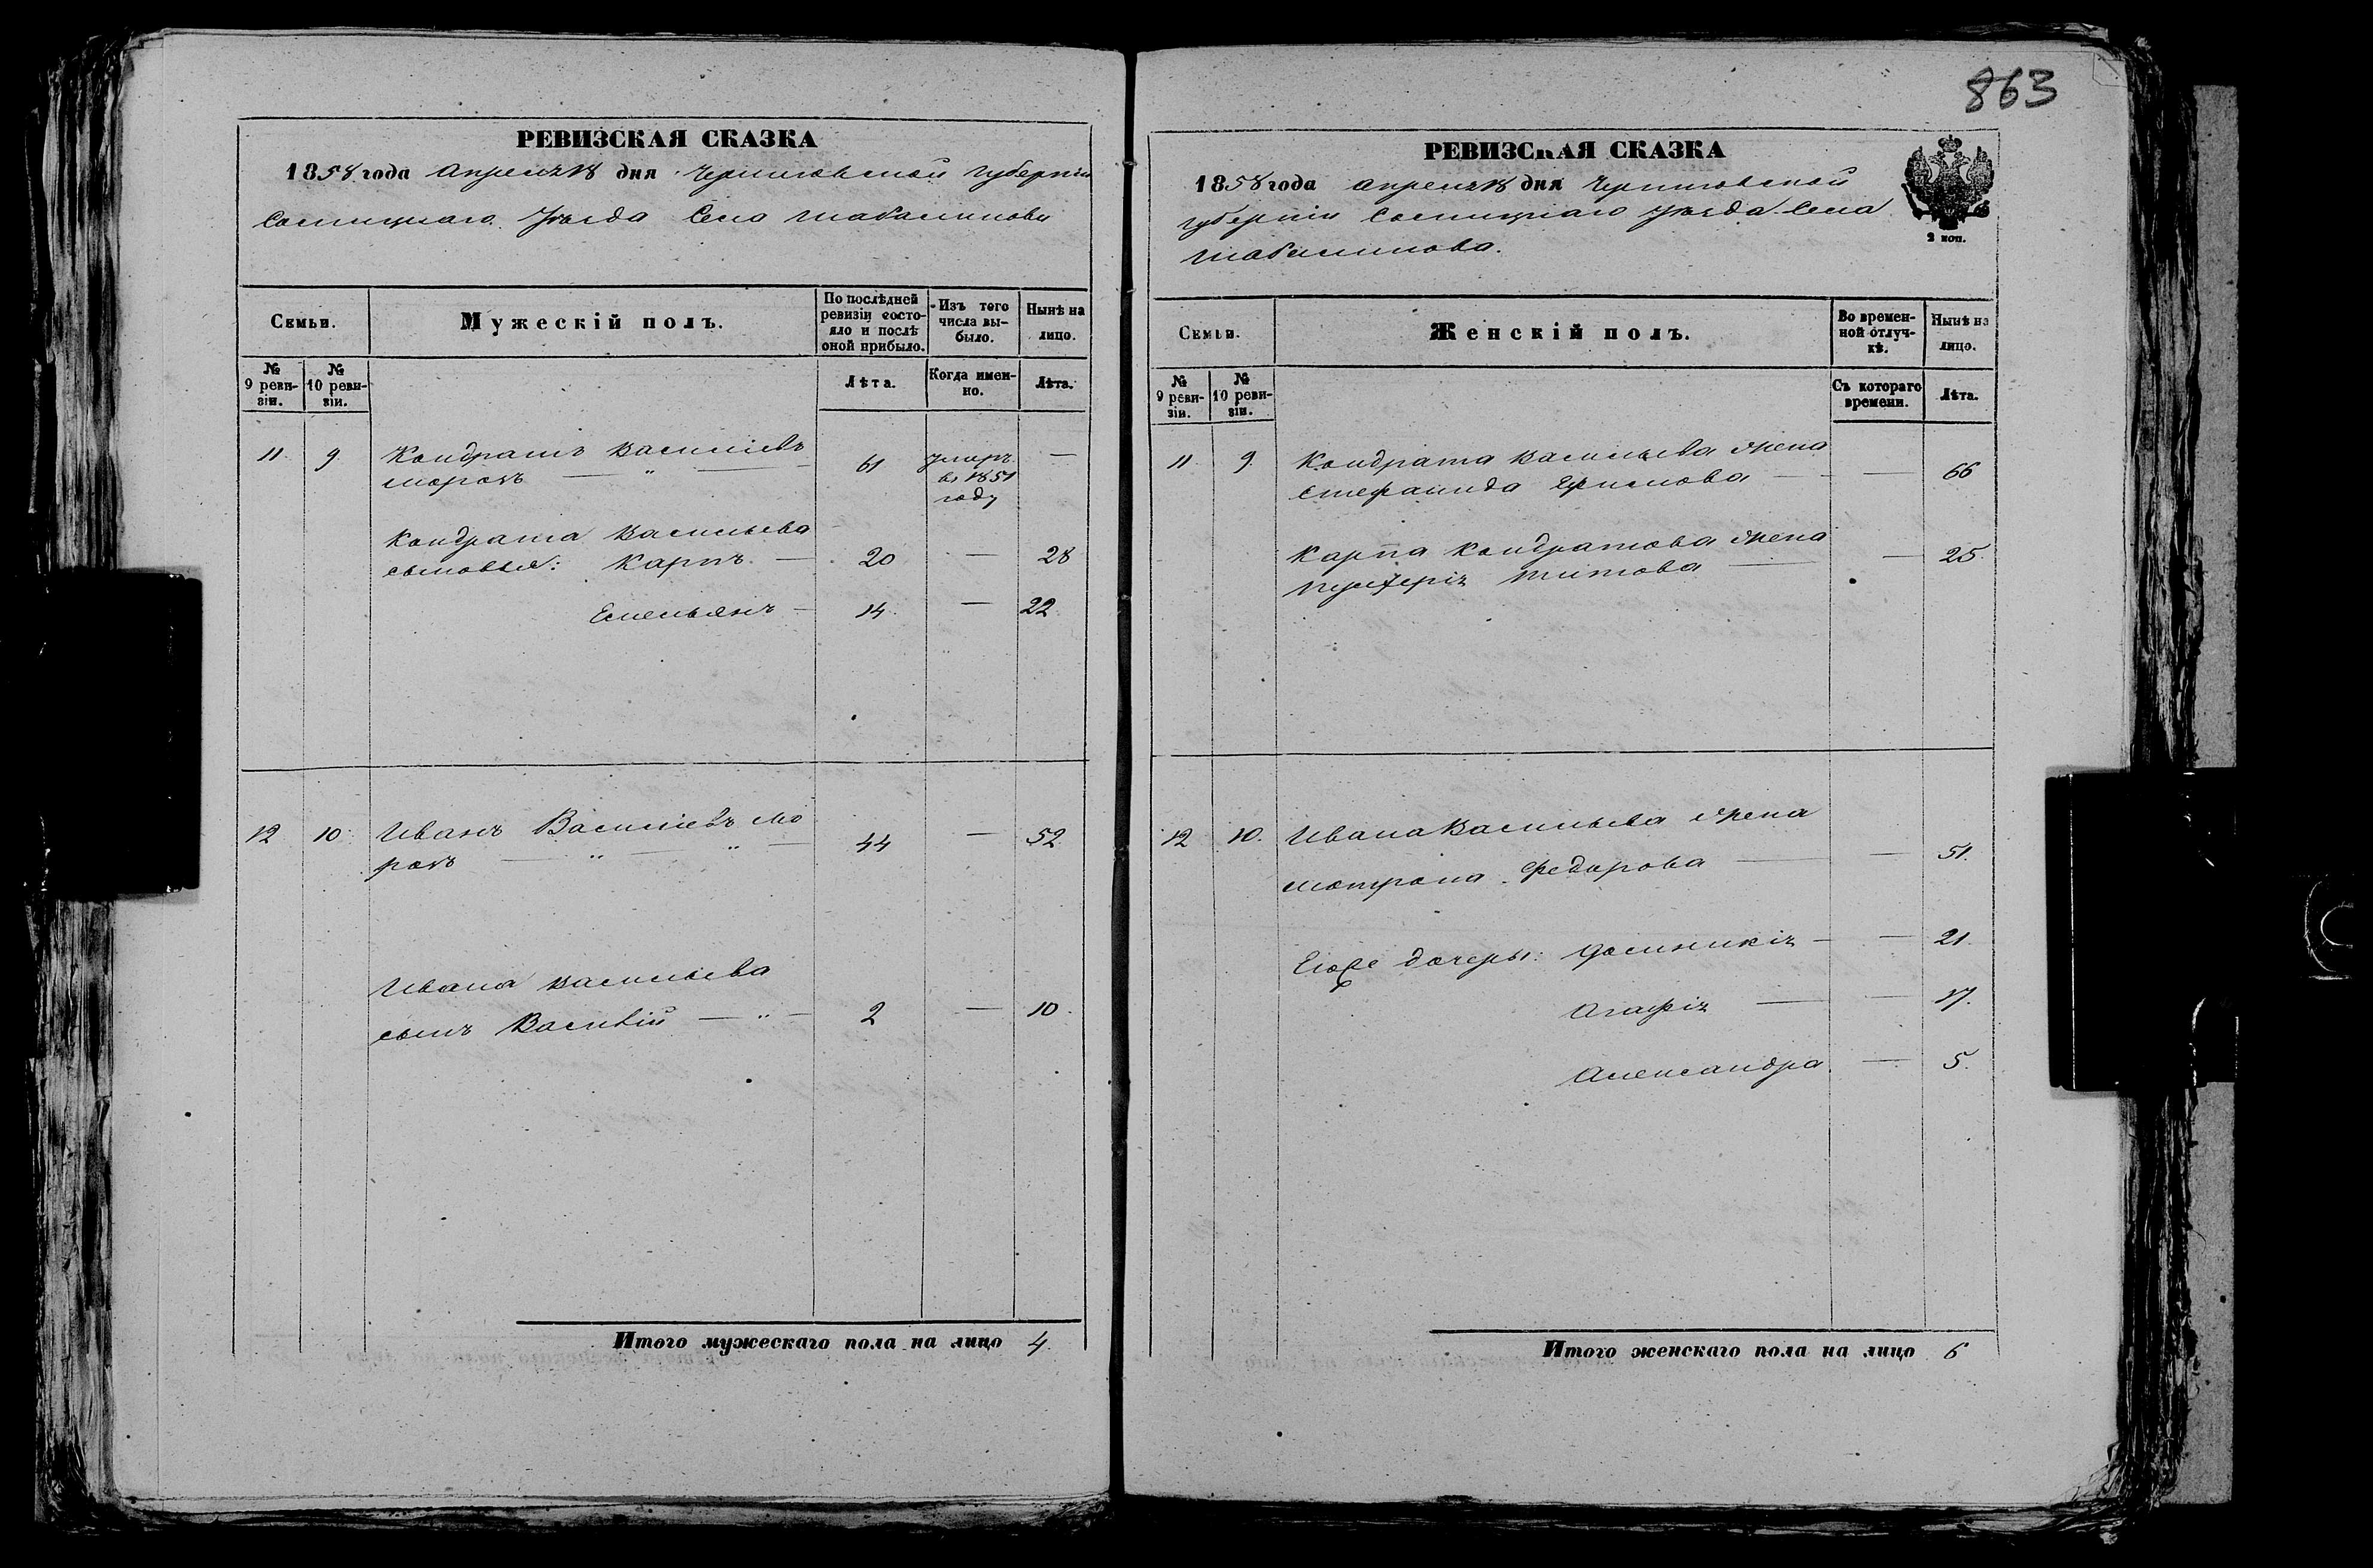 863
РЕВИЗСКАЯ СКАЗКА
1858 года Апреля 18 дня Черниговской Губерніи
Сосницкаго Уѣзда Села Шабалинова
Семьи.
Мужескій полъ.
По послѣдней ревизіи состояло и послѣ оной прибыло.
Изъ того числа выбыло.
Нынѣ на лицо.
№ 9 ревизіи.
№ 10 ревизіи.
Лѣта.
Когда именно.
Лѣта.
11. 9. Кондратъ Василіевъ
Морозъ — " — 61 Умеръ въ 1851 году —
Кондрата Васильева
сыновья: Карпъ — 20 — 28
Емельянъ — 14 — 22
12 10. Иванъ Василіевъ Мо
розъ — " — " — 44 — 52
Ивана Васильева
сынъ Василій — " — 2 — 10.
Итого мужескаго пола на лицо 4.
РЕВИЗСКАЯ СКАЗКА
1858 года апреля 18 дня Черниговской
губерніи Сосницкаго Уѣзда Села
Шабалинова.
2 коп.
Семьи.
Женскій полъ.
Во временной отлучкѣ.
Нынѣ на лицо.
№ 9 ревизіи.
№ 10 ревизіи.
Съ котораго времени.
Лѣта.
11. 9. Кондрата Васильева жена
Стефанида — — 66
Карпа Кондратова жена
Титова — — 25.
12 10. Ивана Васильева жена
Мотрона Федорова — — 51.
Его же дочеры: — — 21.
Агафія — — 17.
Александра — 5.
Итого женскаго пола на лицо 6